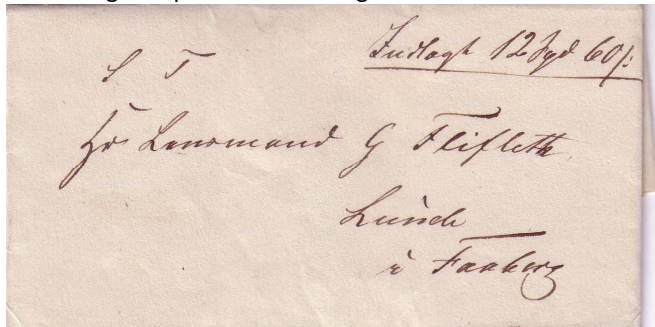 Indlagt 12 Spd 60/:
S T
Hr Lensmand G Fliflet
Lunde
i Faaberg